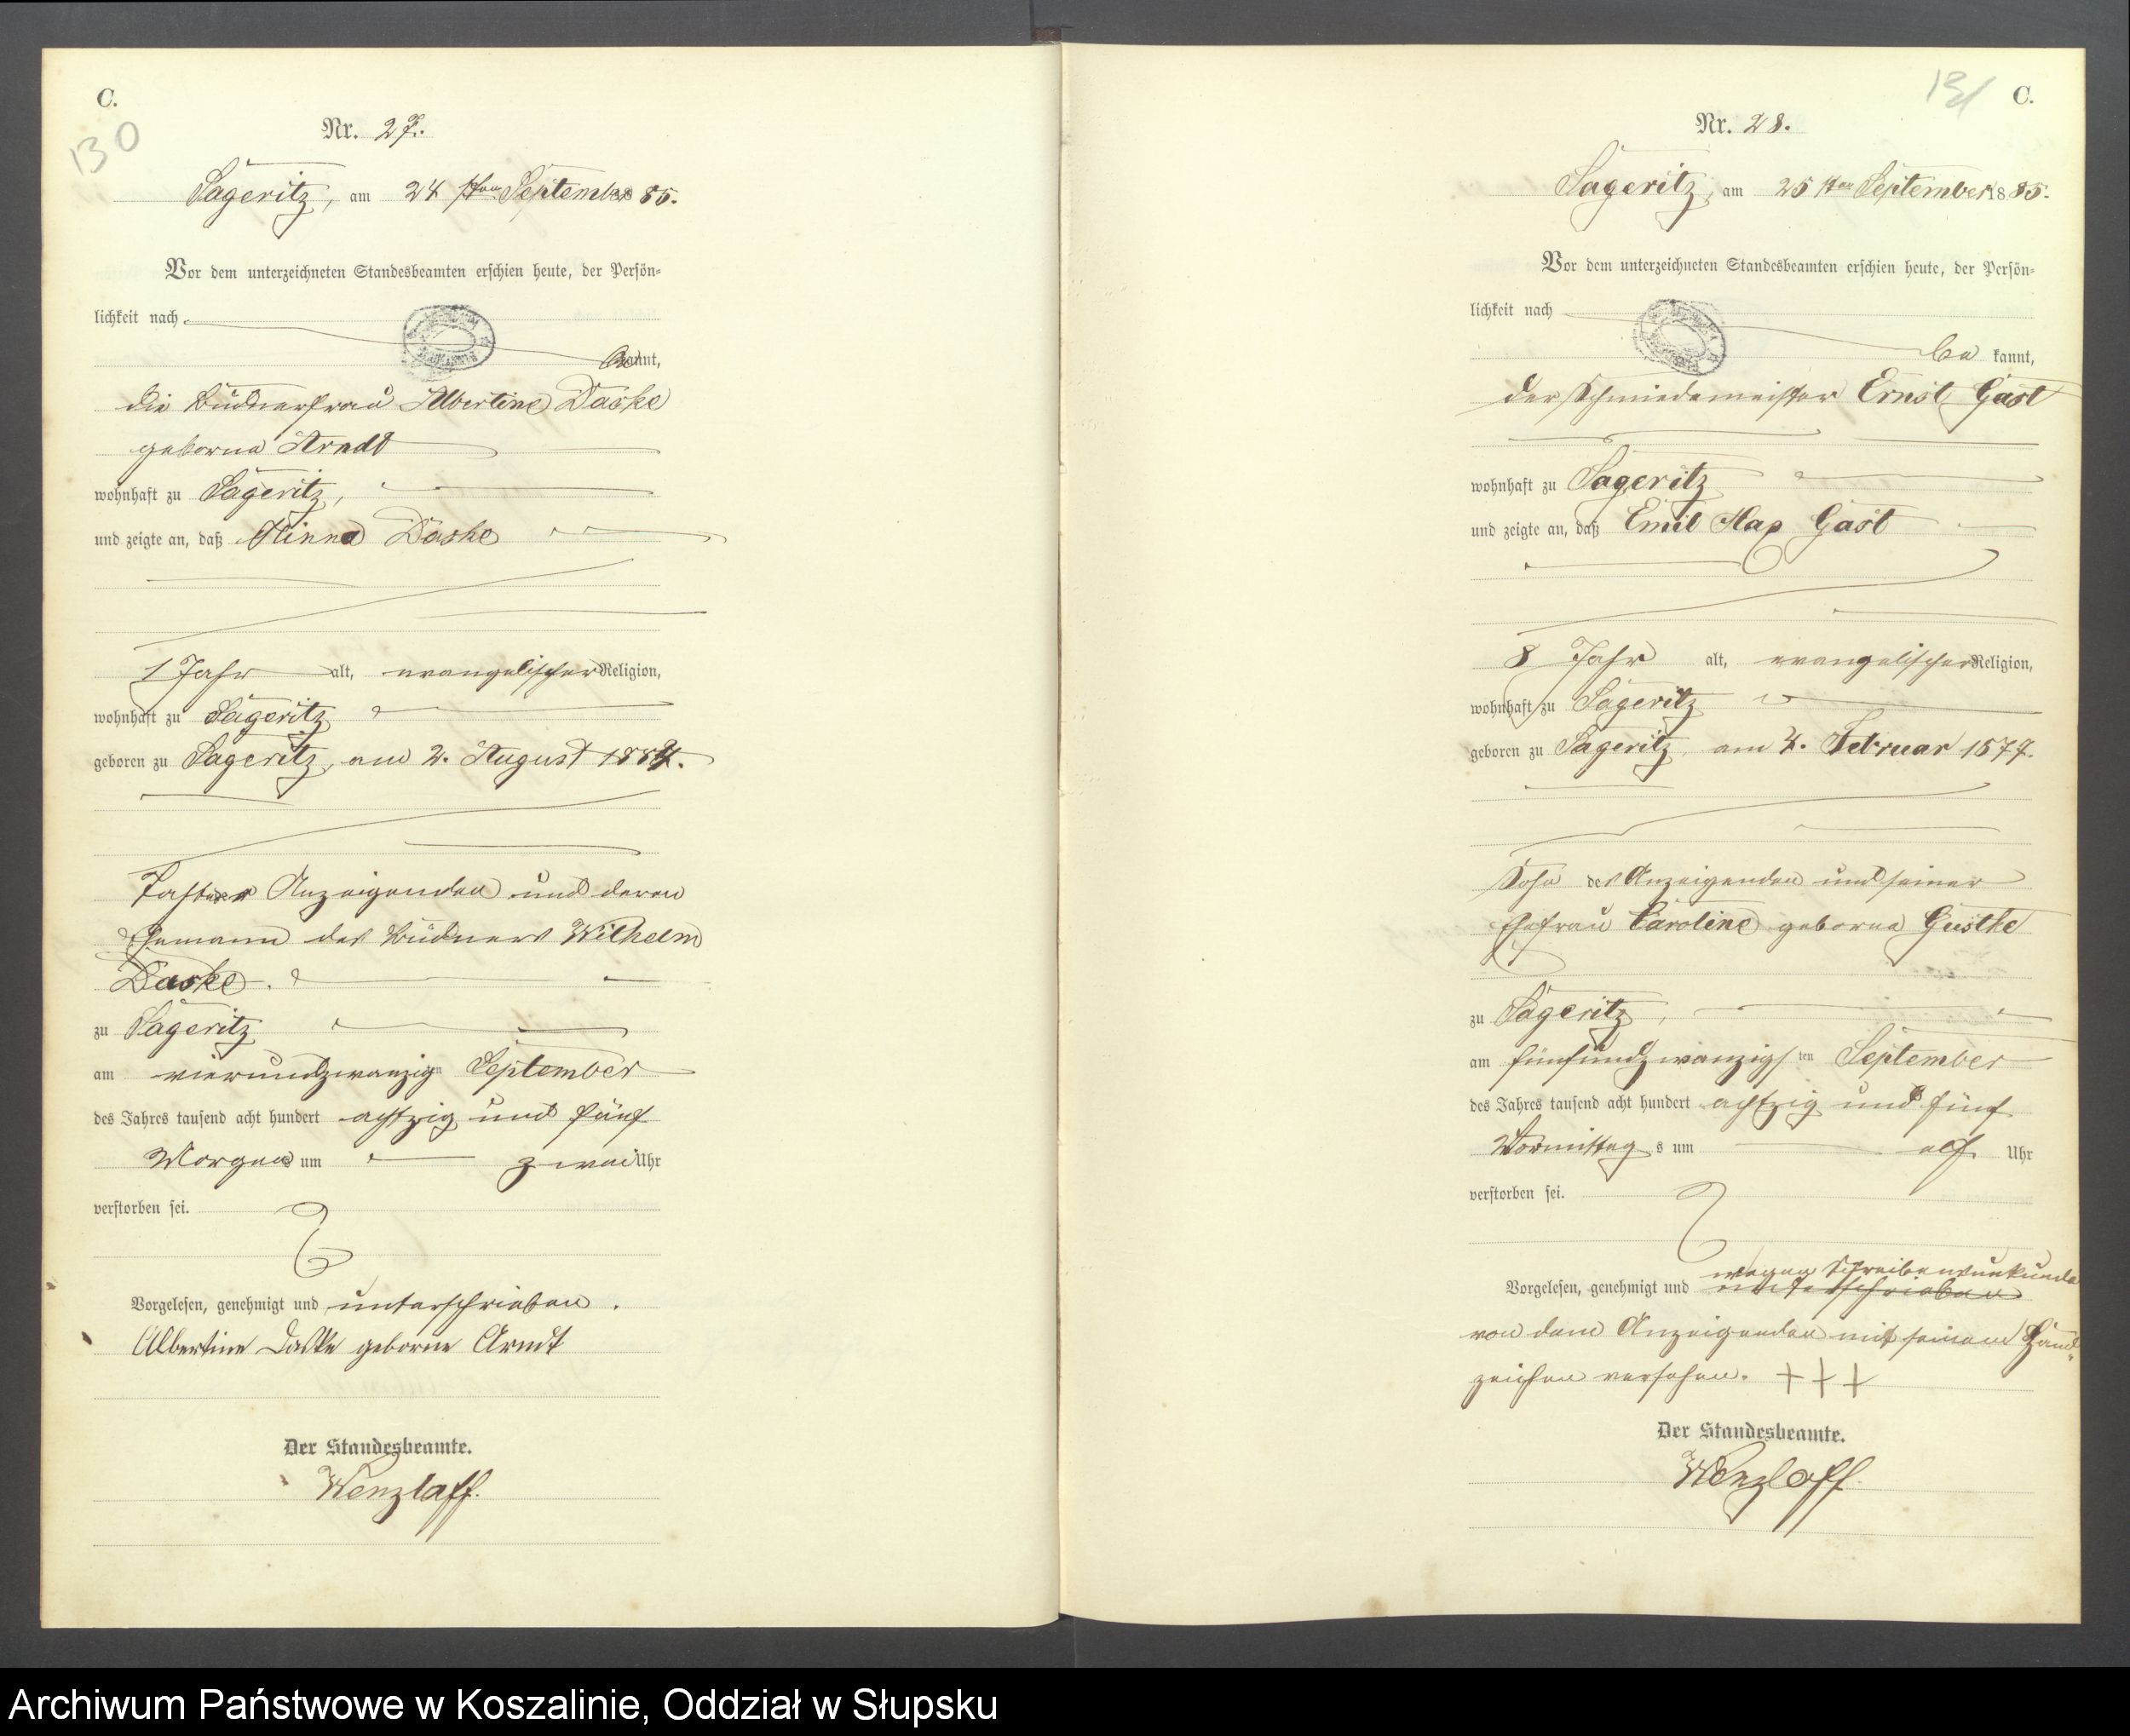 C.
130
Nr. 27.
Sageritz, am 24 sten September 85.
Vor dem unterzeichneten Standesbeamten erschien heute, der Persön-
lichkeit nach
bekannt,
die Büdnerfrau Albertine Daske
geborne Arndt
wohnhaft zu Sageritz,
und zeigte an, daß Minna Daske
1 Jahr alt, evangelischer Religion,
wohnhaft zu Sageritz
geboren zu Sageritz, am 2. August 1884.
Tochter der Anzeigenden und deren
Ehemann des Büdners Wilhelm
Daske.
zu Sageritz
am vierundzwanzig September
des Jahres tausend acht hundert achtzig und fünf
Morgens um zwei Uhr
verstorben sei.
Vorgelesen, genehmigt und unterschrieben.
Albertine Daske geborne Arndt
Der Standesbeamte.
Wenzlaff.
131
C.
Nr. 28.
Sageritz, am 25 sten September 1885.
Vor dem unterzeichneten Standesbeamten erschien heute, der Persön-
lichkeit nach
be kannt,
der Schmiedemeister Ernst Gast
wohnhaft zu Sageritz
und zeigte an, daß Emil Max Gast
8 Jahr alt, evangelischer Religion,
wohnhaft zu Sageritz
geboren zu Sageritz, am 4. Februar 1877.
Sohn des Anzeigenden und seiner
Ehefrau Caroline geborne Guske
zu Sageritz,
am fünfundzwanzigsten September
des Jahres tausend acht hundert achtzig und fünf
Vormittags um elf Uhr
verstorben sei.
wegen Schreibensunkunde
Vorgelesen, genehmigt und unterschrieben
von dem Anzeigenden mit seinem Hand-
zeichen versehen. +++
Der Standesbeamte.
Wenzlaff.
Archiwum Państwowe w Koszalinie, Oddział w Słupsku